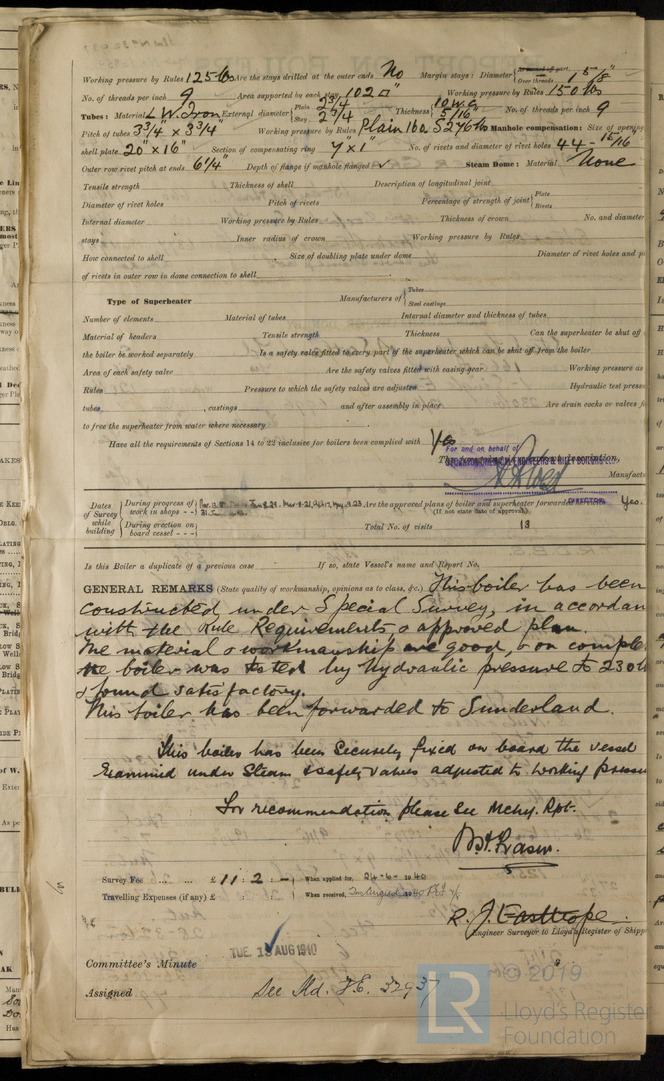 Working pressure by Rules 125 lbs Are the stays drilled at the outer ends No Margin stays: Diameter { At turned off part, Over threads 1 5/8"
No. of threads per inch 9 Area supported by each stay 102 □" Working pressure by Rules 150 lbs
Tubes: Material L W. Iron External diameter { Plain 2 3/4 Stay 2 3/4" Thickness { 10 WG 5/16" No. of threads per inch 9
Pitch of tubes 3 3/4 x 3 3/4" Working pressure by Rules Plain 160 S 276 lbs Manhole compensation: Size of opening
shell plate 20" x 16" Section of compensating ring 7" x 1" No. of rivets and diameter of rivet holes 44 - 15/16
Outer row rivet pitch at ends 6 1/4" Depth of flange if manhole flanged ✓ Steam Dome: Material None
Tensile strength Thickness of shell Description of longitudinal joint
Diameter of rivet holes Pitch of rivets Percentage of strength of joint { Plate Rivets
Internal diameter Working pressure by Rules Thickness of crown No. and diameter
stays Inner radius of crown Working pressure by Rules
How connected to shell Size of doubling plate under dome Diameter of rivet holes and p
of rivets in outer row in dome connection to shell
Type of Superheater Manufacturers of { Tubes Steel castings
Number of elements Material of tubes Internal diameter and thickness of tubes
Material of headers Tensile strength Thickness Can the superheater be shut off
the boiler be worked separately Is a safety valve fitted to every part of the superheater which can be shut off from the boiler
Area of each safety valve Are the safety valves fitted with easing gear Working pressure as
Rules Pressure to which the safety valves are adjusted Hydraulic test press
tubes, castings and after assembly in place Are drain cocks or valves f
to free the superheater from water where necessary
Have all the requirements of Sections 14 to 22 inclusive for boilers been complied with Yes
For and on behalf of
Manufact
DIRECTOR
Dates of Survey while building { During progress of work in shops - - Are the approved plans of boiler and superheater forwarded Yes.
(If not state date of approval)
During erection on board vessel - - - Total No. of visits 13
Is this Boiler a duplicate of a previous case If so, state Vessel's name and Report No.
GENERAL REMARKS (State quality of workmanship, opinions as to class, &c.) This boiler has been
constructed under Special Survey, in accordan
with the Rule Requirements, & approved plan.
The material & workmanship are good, & on comple
the boiler was tested by hydraulic pressure to 230 lb
& found satisfactory.
This boiler has been forwarded to Sunderland.
This boiler has been securely fixed on board the vessel
Examined under Steam & safety valves adjusted to working pressu
For recommendation please see Mchy. Rpt.
Survey Fee ... ... £ 11 : 2 : - When applied for, 24 - 6 - 1940
Travelling Expenses (if any) £ When received,
R. J. Easthope.
Engineer Surveyor to Lloyd's Register of Shipp
TUE. 13 AUG 1940
Committee's Minute
Assigned See Sld. F.E. 32937
LR © 2019
Lloyd's Register
Foundation